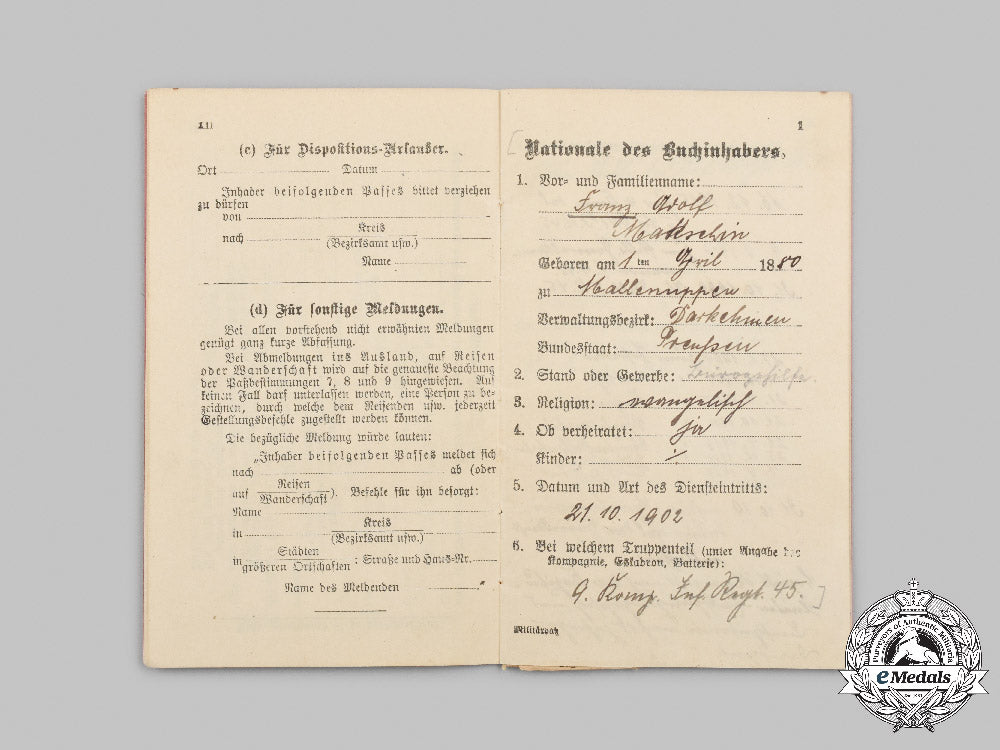 10
(c) Für Dispositions-Urlauber.
Ort Datum
Inhaber beifolgenden Passes bittet verziehen
zu dürfen
von
nach Kreis
(Bezirksamt usw.)
Name
(d) Für sonstige Meldungen.
Bei allen vorstehend nicht erwähnten Meldungen
genügt ganz kurze Abfassung.
Bei Abmeldungen ins Ausland, auf Reisen
oder Wanderschaft wird auf die genaueste Beachtung
der Paßbestimmungen 7, 8 und 9 hingewiesen. Auf
keinen Fall darf unterlassen werden, eine Person zu be-
zeichnen, durch welche dem Reisenden usw. jederzeit
Gestellungsbefehle zugestellt werden können.
Die bezügliche Meldung würde lauten:
„Inhaber beifolgenden Passes meldet sich
nach ab (oder
auf Reisen
Wanderschaft). Befehle für ihn besorgt:
Name
in Kreis
(Bezirksamt usw.)
in Städten
größeren Ortschaften: Straße und Haus-Nr.
Name des Meldenden "
1
Nationale des Buchinhabers.
1. Vor- und Familienname:
Franz Adolf
Geboren am 1ten April 1880
zu Mallenuppen
Verwaltungsbezirk: Darkehmen
Bundesstaat: Preußen
2. Stand oder Gewerbe:
3. Religion: evangelisch
4. Ob verheiratet: ja
Kinder: ./.
5. Datum und Art des Diensteintritts:
21. 10. 1902
6. Bei welchem Truppenteil (unter Angabe der
Kompagnie, Eskadron, Batterie):
9. Komp. Inf. Regt. 45.
Militärpaß
Purveyors of Authentic Militaria
eMedals